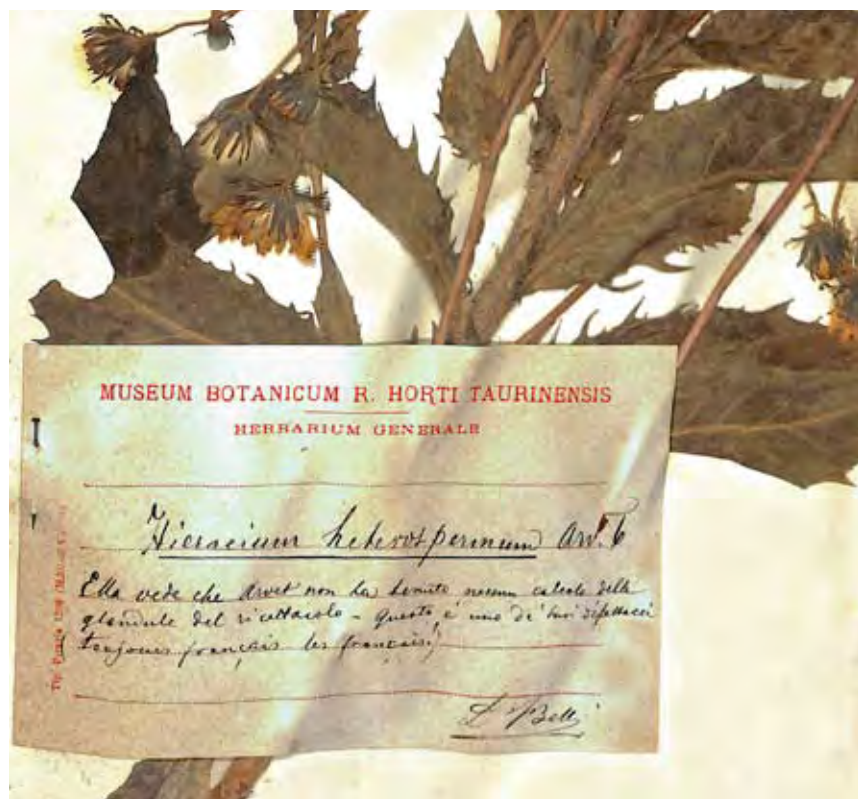 MUSEUM BOTANICUM R. HORTI TAURINENSIS
HERBARIUM GENERALE
Hieracium heterospermum Arv. T
Ella vede che Arvet non ha tenuto nessun calcolo delle
glandule del ricettacolo - Questo è uno de' suoi dispettacci
toujours français les français!
S Belli